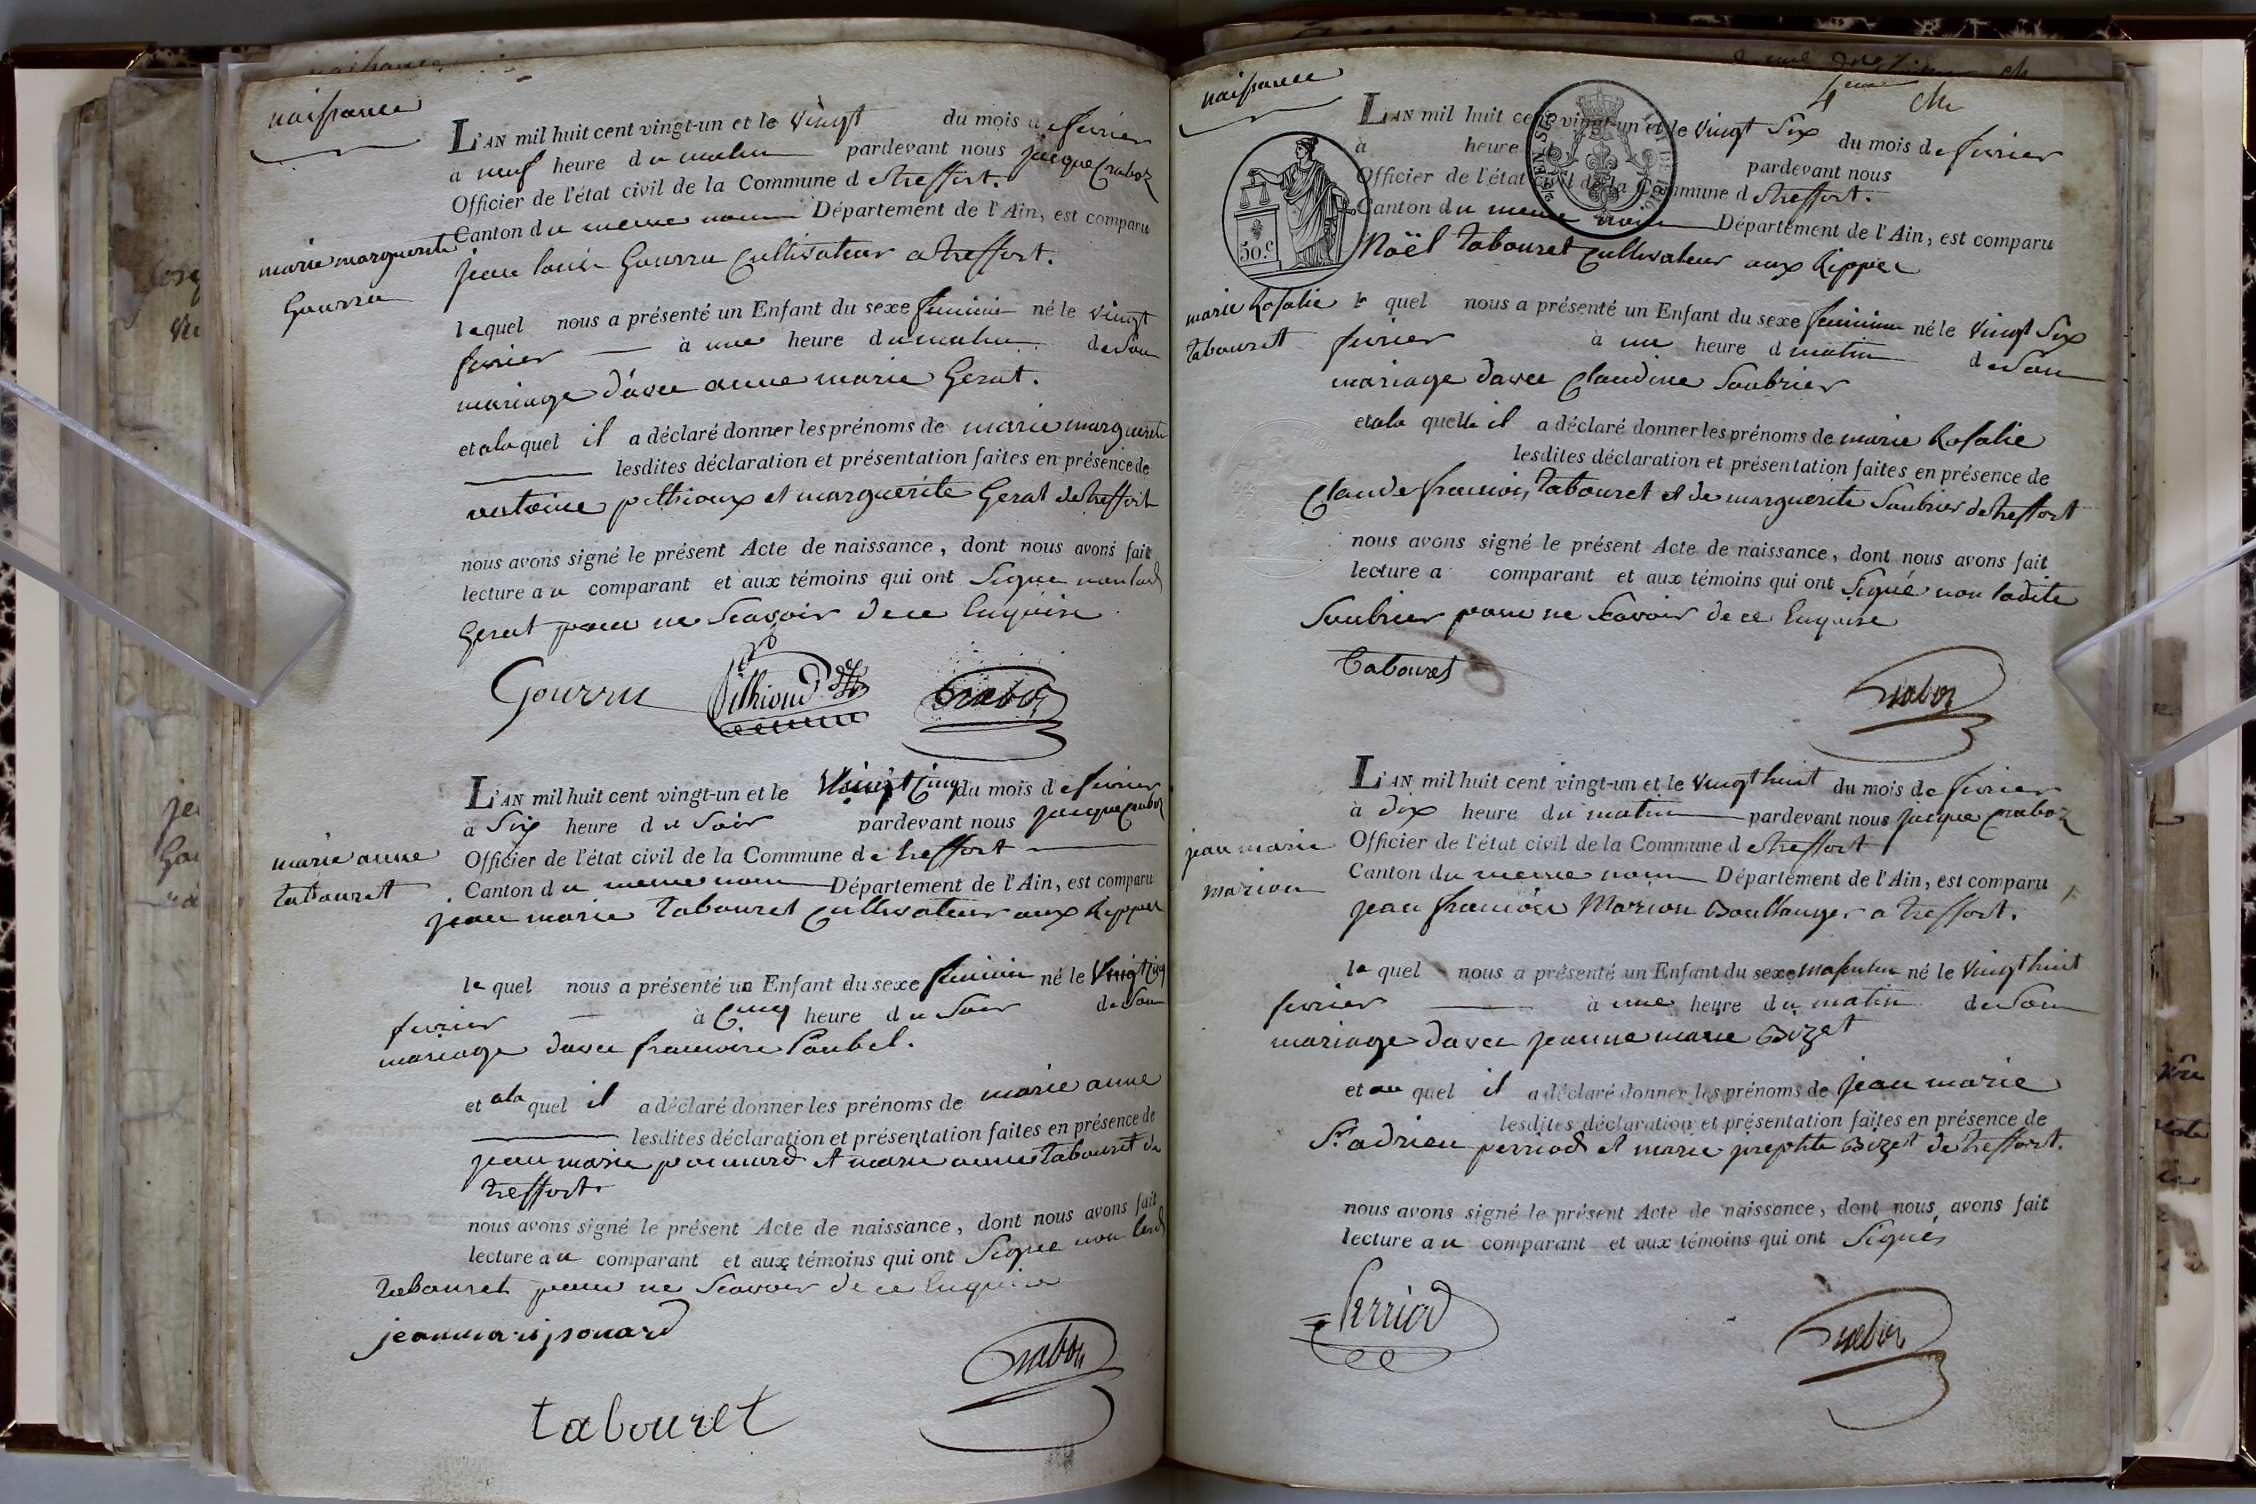 naissance
L'AN mil huit cent vingt-un et le vingt du mois de fevrier
à neuf heure du matin pardevant nous jacque Craboz
Officier de l'état civil de la Commune de treffort.
Canton du meme nom Département de l'Ain, est comparu
marie marguerite
Gourru
jean louis Gourru Cultivateur a treffort.
lequel nous a présenté un Enfant du sexe feminin né le vingt
fevrier à une heure du matin de son
mariage d'avec anne marie Gerat.
et a la quel il a déclaré donner les prénoms de marie marguerite
lesdites déclaration et présentation faites en présence de
antoine pithioux et marguerite Gerat de treffort
nous avons signé le présent Acte de naissance, dont nous avons fait
lecture au comparant et aux témoins qui ont Signé non lad
Gerat pour ne Scavoir de ce Enquise
Gourru Pithioud Craboz
L'AN mil huit cent vingt-un et le vingt Cinq du mois de fevrier
à Six heure du Soir pardevant nous jacque Craboz
Officier de l'état civil de la Commune de treffort
Canton du meme nom Département de l'Ain, est comparu
marie anne
tabouret
jean marie tabouret Cultivateur aux Rippes
le quel nous a présenté un Enfant du sexe feminin né le Vingt Cinq
fevrier à Cinq heure du Soir de Son
mariage davec francoise Paubel.
et ala quel il a déclaré donner les prénoms de marie anne
lesdites déclaration et présentation faites en présence de
jean marie ponnard et marie anne tabouret de
treffort.
nous avons signé le présent Acte de naissance, dont nous avons fait
lecture au comparant et aux témoins qui ont Signé non lad
tabouret pour ne Scavoir de ce Enquise
jeanmarie ponard
Craboz
tabouret
naissance
4eme
L'AN mil huit cent vingt-un et le vingt Six du mois de fevrier
à heure pardevant nous
Officier de l'état civil de la Commune de treffort.
Canton du meme nom Département de l'Ain, est comparu
50.c
Noël tabouret Cultivateur aux Rippes
marie Rosalie
tabouret
le quel nous a présenté un Enfant du sexe feminin né le Vingt Six
fevrier à une heure d matin de Son
mariage davec Claudine Saubrier
et ala quelle il a déclaré donner les prénoms de marie Rosalie
lesdites déclaration et présentation faites en présence de
Claude francois tabouret et de marguerite Saubrier de treffort
nous avons signé le présent Acte de naissance, dont nous avons fait
lecture a comparant et aux témoins qui ont Signé non ladite
Saubrier pour ne Scavoir de ce Enquise
Tabouret
Craboz
L'AN mil huit cent vingt-un et le vingt huit du mois de fevrier
à dix heure du matin pardevant nous jacque Craboz
Officier de l'état civil de la Commune de treffort
Canton du meme nom Département de l'Ain, est comparu
jean marie
marion
jean francois Marion Boullanger a treffort.
le quel nous a présenté un Enfant du sexe masculin né le Vingt huit
fevrier à une heure du matin de Son
mariage davec jeanne marie Bizet
et au quel il a déclaré donner les prénoms de jean marie
lesdites déclaration et présentation faites en présence de
Sr adrien perriod et marie josephte Bizet de treffort.
nous avons signé le présent Acte de naissance, dont nous avons fait
lecture au comparant et aux témoins qui ont Signés
Perriod
Craboz